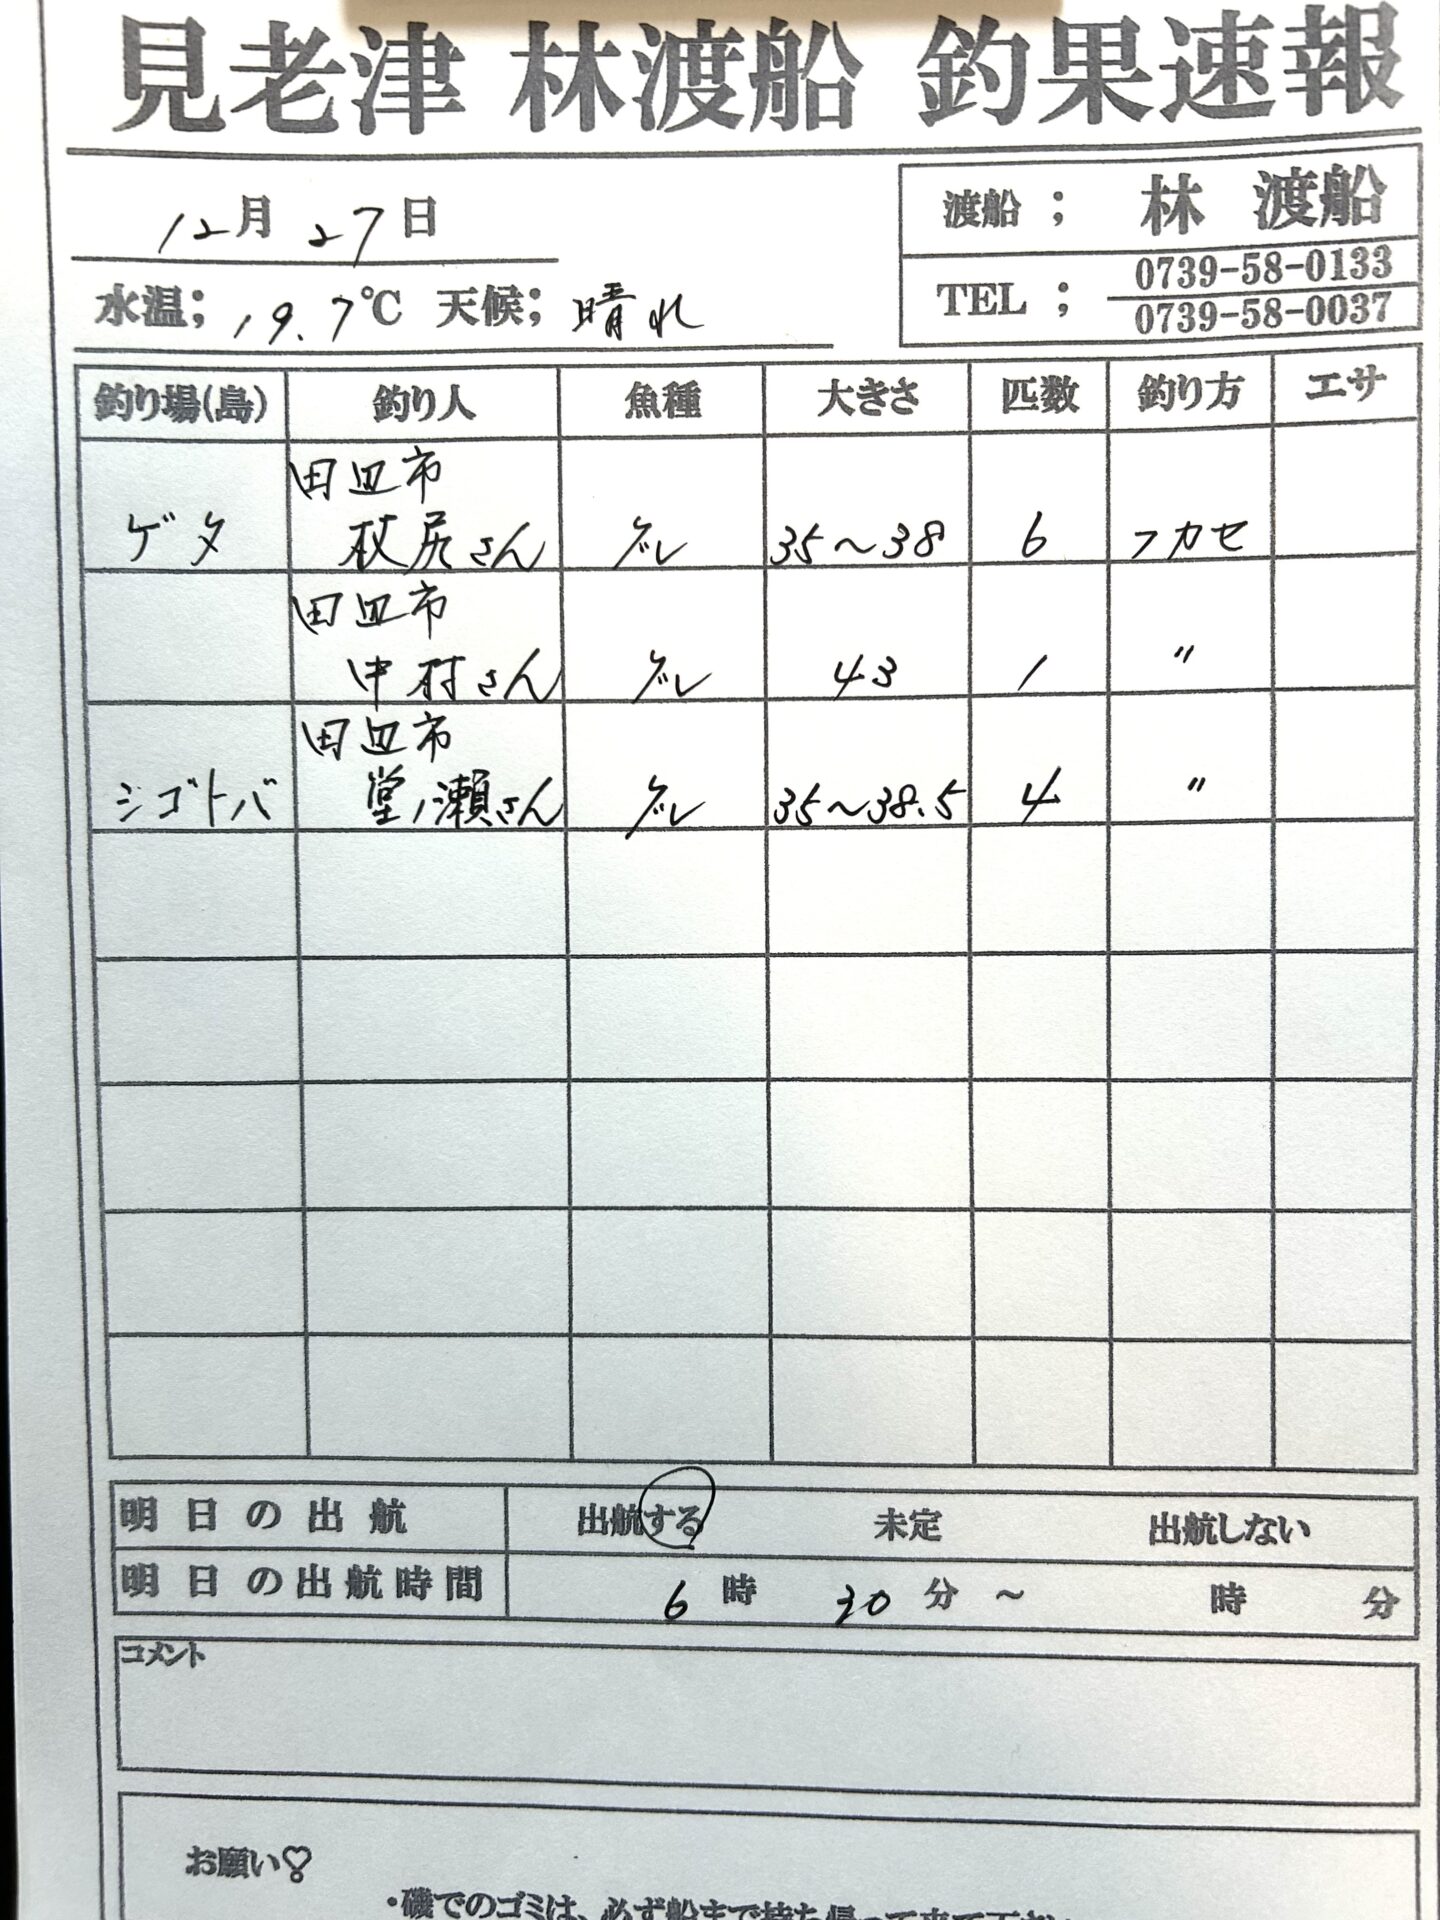 見老津 林渡船 釣果速報
12月 27日
渡船 ; 林 渡船
水温; 19.7℃ 天候; 晴れ
TEL ; 0739-58-0133
0739-58-0037
釣り場(島) 釣り人 魚種 大きさ 匹数 釣り方 エサ
田辺市
ゲタ 杖尻さん グレ 35〜38 6 フカセ
田辺市
中村さん グレ 43 1 〃
田辺市
シゴトバ 堂ノ瀬さん グレ 35〜38.5 4 〃
明日の出航 出航する 未定 出航しない
明日の出航時間 6時 30分 〜 時 分
コメント
お願い♡
・磯でのゴミは、必ず船まで持ち帰って来て下さい